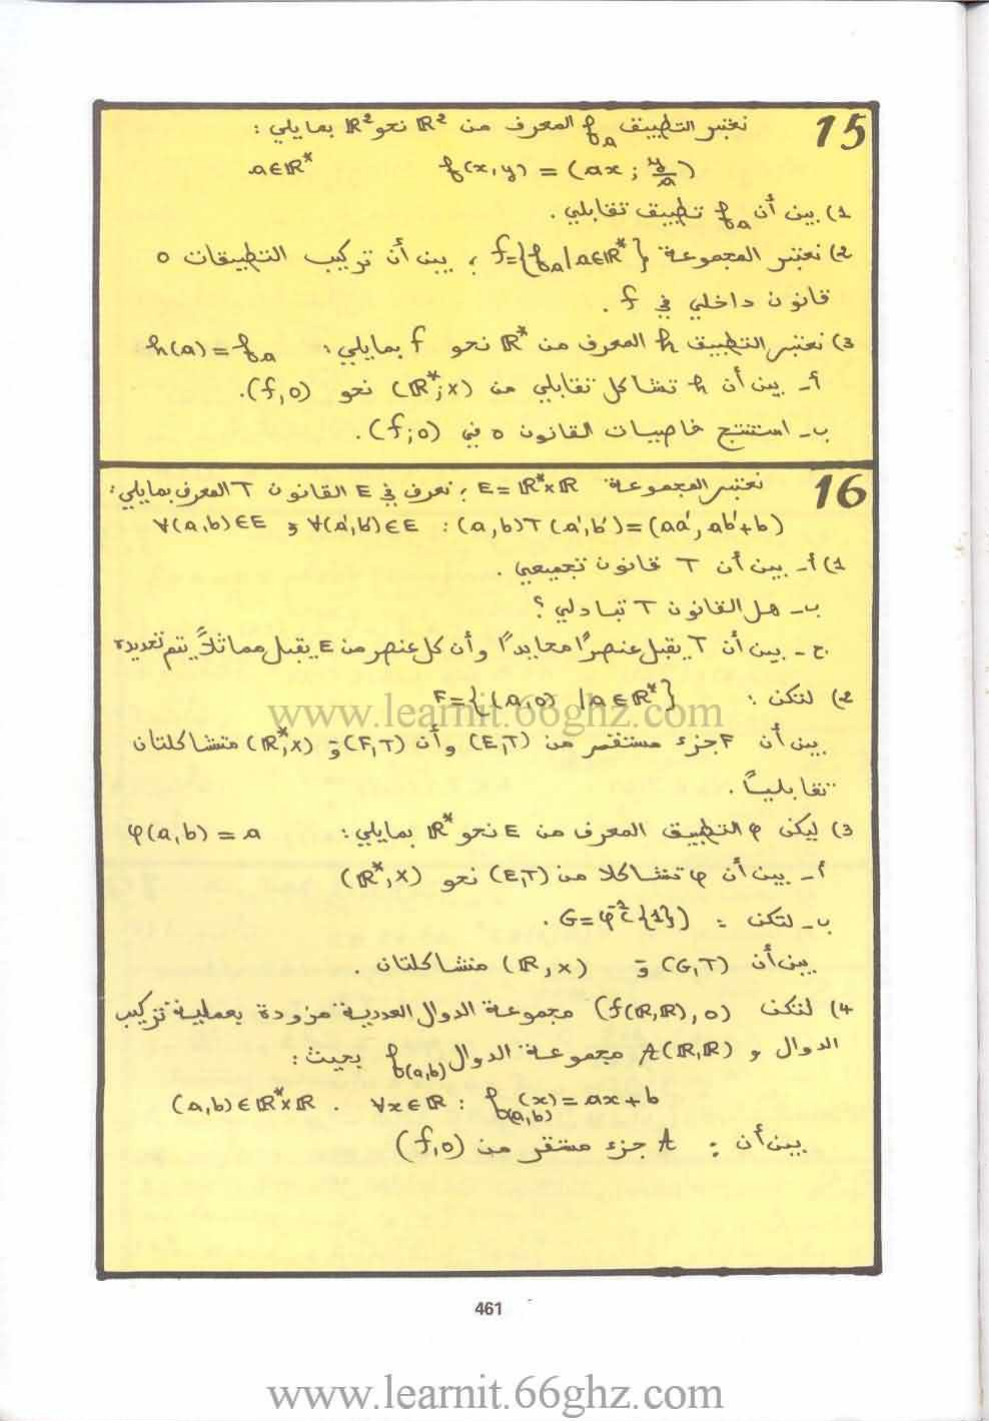 15
نعتبر التطبيق f_a المعرف من ℝ² نحو ℝ² بما يلي :
f(x,y) = (ax ; y/a)     a∈ℝ*
1) بين أن f_a تطبيق تقابلي .
2) نعتبر المجموعة f={f_a/a∈ℝ*} ؛ بين أن تركيب التطبيقات o
قانون داخلي في f .
3) نعتبر التطبيق h المعرف من ℝ* نحو f بمايلي : h(a) = f_a
أ- بين أن h تشاكل تقابلي من (ℝ*;×) نحو (f,o).
ب- استنتج خاصيات القانون o في (f;o).
16
نعتبر المجموعة E=ℝ*×ℝ ؛ نعرف في E القانون T المعرف بمايلي :
∀(a,b)∈E و ∀(a',b')∈E : (a,b)T(a',b')=(aa', ab'+b)
1) أ- بين أن T قانون تجميعي .
ب- هل القانون T تبادلي ؟
ج- بين أن T يقبل عنصرًا محايدًا وأن كل عنصر من E يقبل مماثلاً يتم تحديده
2) لتكن : F={(a,0) /a∈ℝ*}
www.learnit.66ghz.com
بين أن F جزء مستقر من (E,T) وأن (F,T) و (ℝ*,×) متشاكلتان
تقابلياً .
3) ليكن φ التطبيق المعرف من E نحو ℝ* بمايلي : φ(a,b) = a
أ- بين أن φ تشاكلا من (E,T) نحو (ℝ*,×)
ب- لتكن : G=φ⁻¹({1}) .
بين أن (G,T) و (ℝ,×) متشاكلتان .
4) لتكن (f(ℝ,ℝ),o) مجموعة الدوال العددية مزودة بعملية تركيب
الدوال و A(ℝ,ℝ) مجموعة الدوال f_(a,b) بحيث :
(a,b)∈ℝ*×ℝ . ∀x∈ℝ : f_(a,b)(x)= ax+b
بين أن : A جزء مستقر من (f,o)
461
www.learnit.66ghz.com